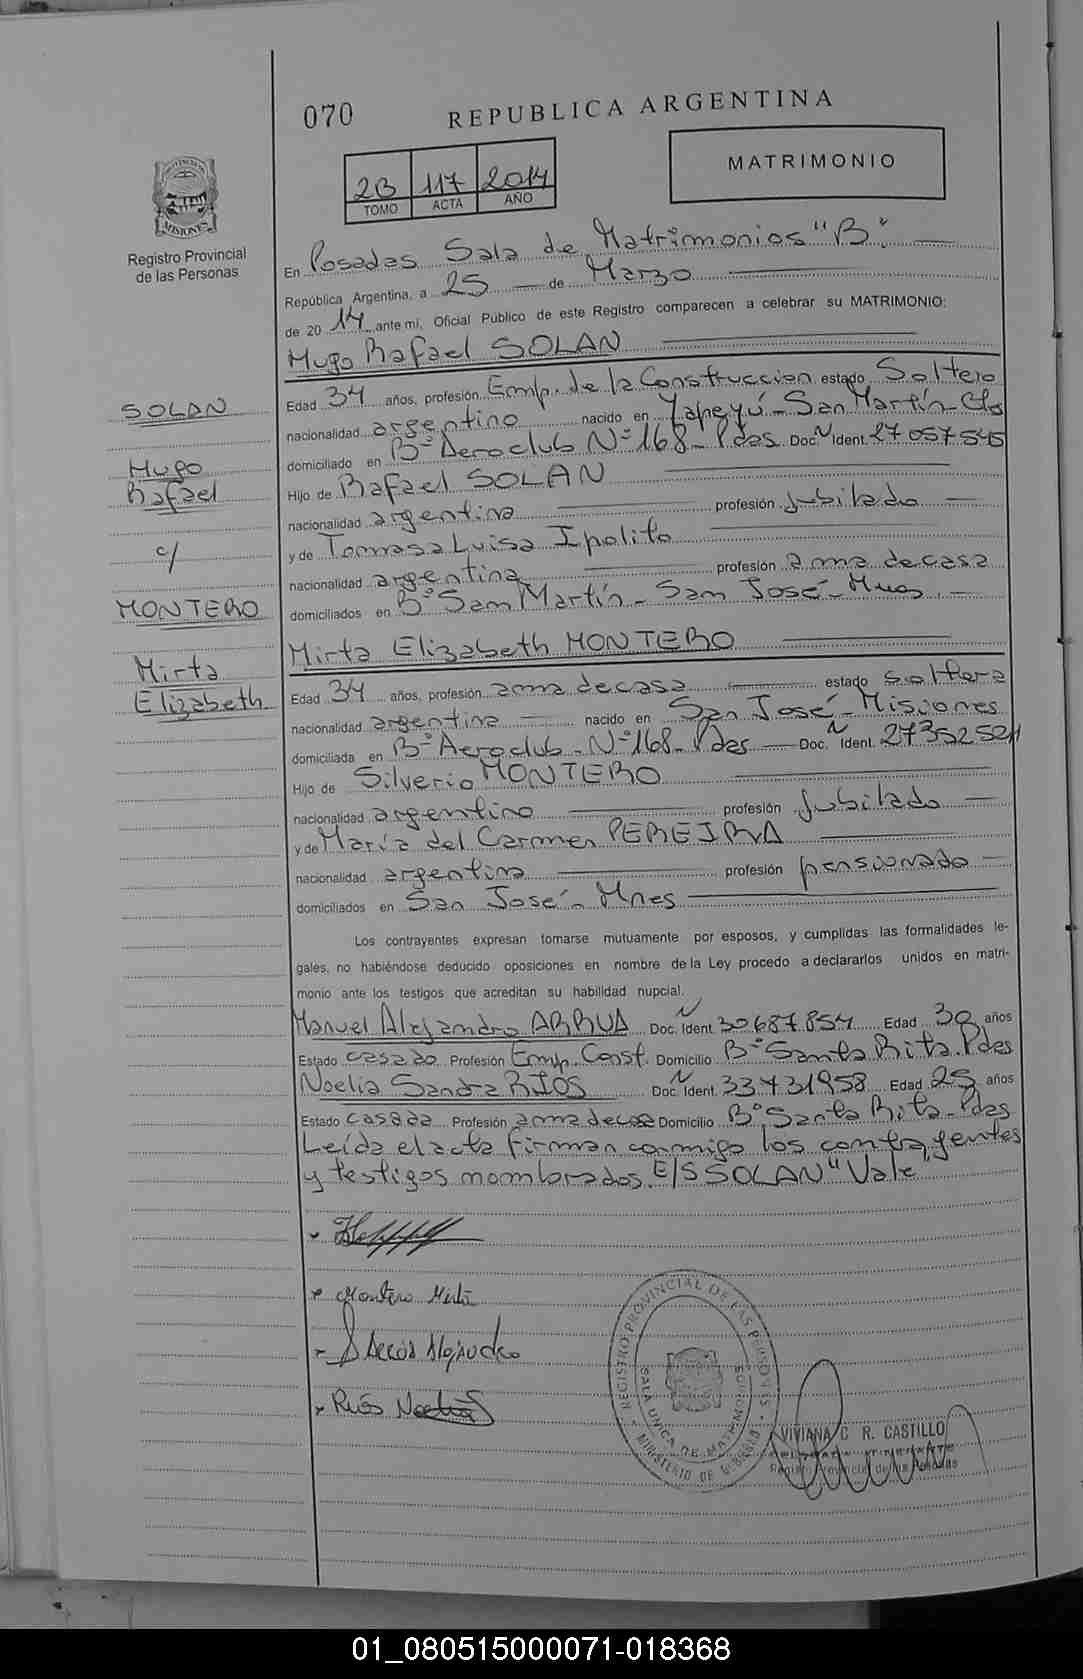 070
REPUBLICA ARGENTINA
MATRIMONIO
2B 117 2014
TOMO ACTA AÑO
PROVINCIA DE
MISIONES
Registro Provincial
de las Personas
En Posadas Sala de Matrimonios "B".
República Argentina, a 25 de Marzo
de 2014 ante mi, Oficial Público de este Registro comparecen a celebrar su MATRIMONIO:
Hugo Rafael SOLAN
SOLAN
Hugo
Rafael
c/
MONTERO
Mirta
Elizabeth
Edad 34 años, profesión Emp. de la Construccion estado Soltero
nacionalidad argentino nacido en Yapeyú - San Martín - Cts
domiciliado en B° Aeroclub N° 168 - Pdas Doc. N Ident. 27057545
Hijo de Rafael SOLAN
nacionalidad argentina profesión Jubilado
y de Tomasa Luisa Ipolito
nacionalidad argentina profesión ama de casa
domiciliados en B° San Martín - San José - Mnes
Mirta Elizabeth MONTERO
Edad 34 años, profesión ama de casa estado soltera
nacionalidad argentina nacido en San José - Misiones
domiciliada en B° Aeroclub - N° 168 - Pdas Doc. N Ident.
Hijo de Silverio MONTERO
nacionalidad argentino profesión Jubilado
y de María del Carmen PEREIRA
nacionalidad argentina profesión pensionada
domiciliados en San José - Mnes
Los contrayentes expresan tomarse mutuamente por esposos, y cumplidas las formalidades le-
gales, no habiéndose deducido oposiciones en nombre de la Ley procedo a declararlos unidos en matri-
monio ante los testigos que acreditan su habilidad nupcial.
Manuel Alejandro ARRUA Doc. N Ident. 30687854 Edad 30 años
Estado casado Profesión Emp. Const. Domicilio B° Santa Rita. Pdas
Noelia Sandra RIOS Doc. N Ident. 33731958 Edad 25 años
Estado casada Profesión ama de casa Domicilio B° Santa Rita - Pdas
Leída el acta firman conmigo los contrayentes
y testigos nombrados. E/S SOLAN "Vale"
Montero Mirta
Ríos Noelia
REGISTRO PROVINCIAL DE LAS PERSONAS
SALA UNICA DE MATRIMONIOS
MINISTERIO DE GOBIERNO
VIVIANA C R. CASTILLO
Registro Provincial de las Personas
01_080515000071-018368